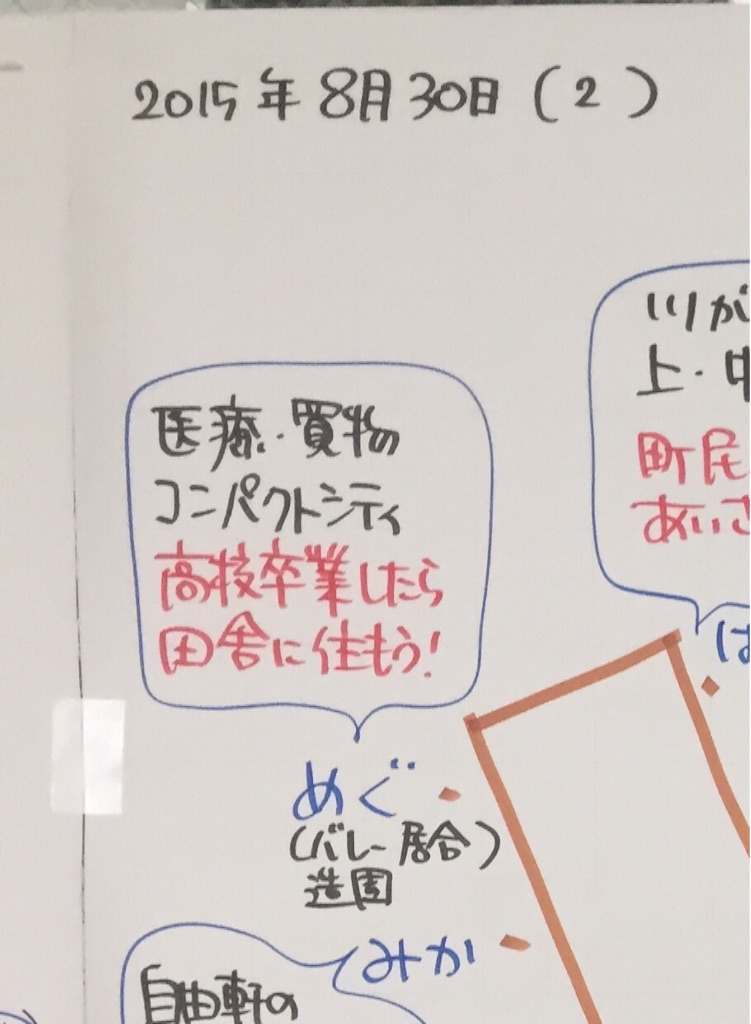 2015年 8月30日(2)
川が
上・中
町民
あいさ
は
医療・買物
コンパクトシティ
高校卒業したら
田舎に住もう!
めぐ
(バレー 居合)
造園
みか
自由軒の